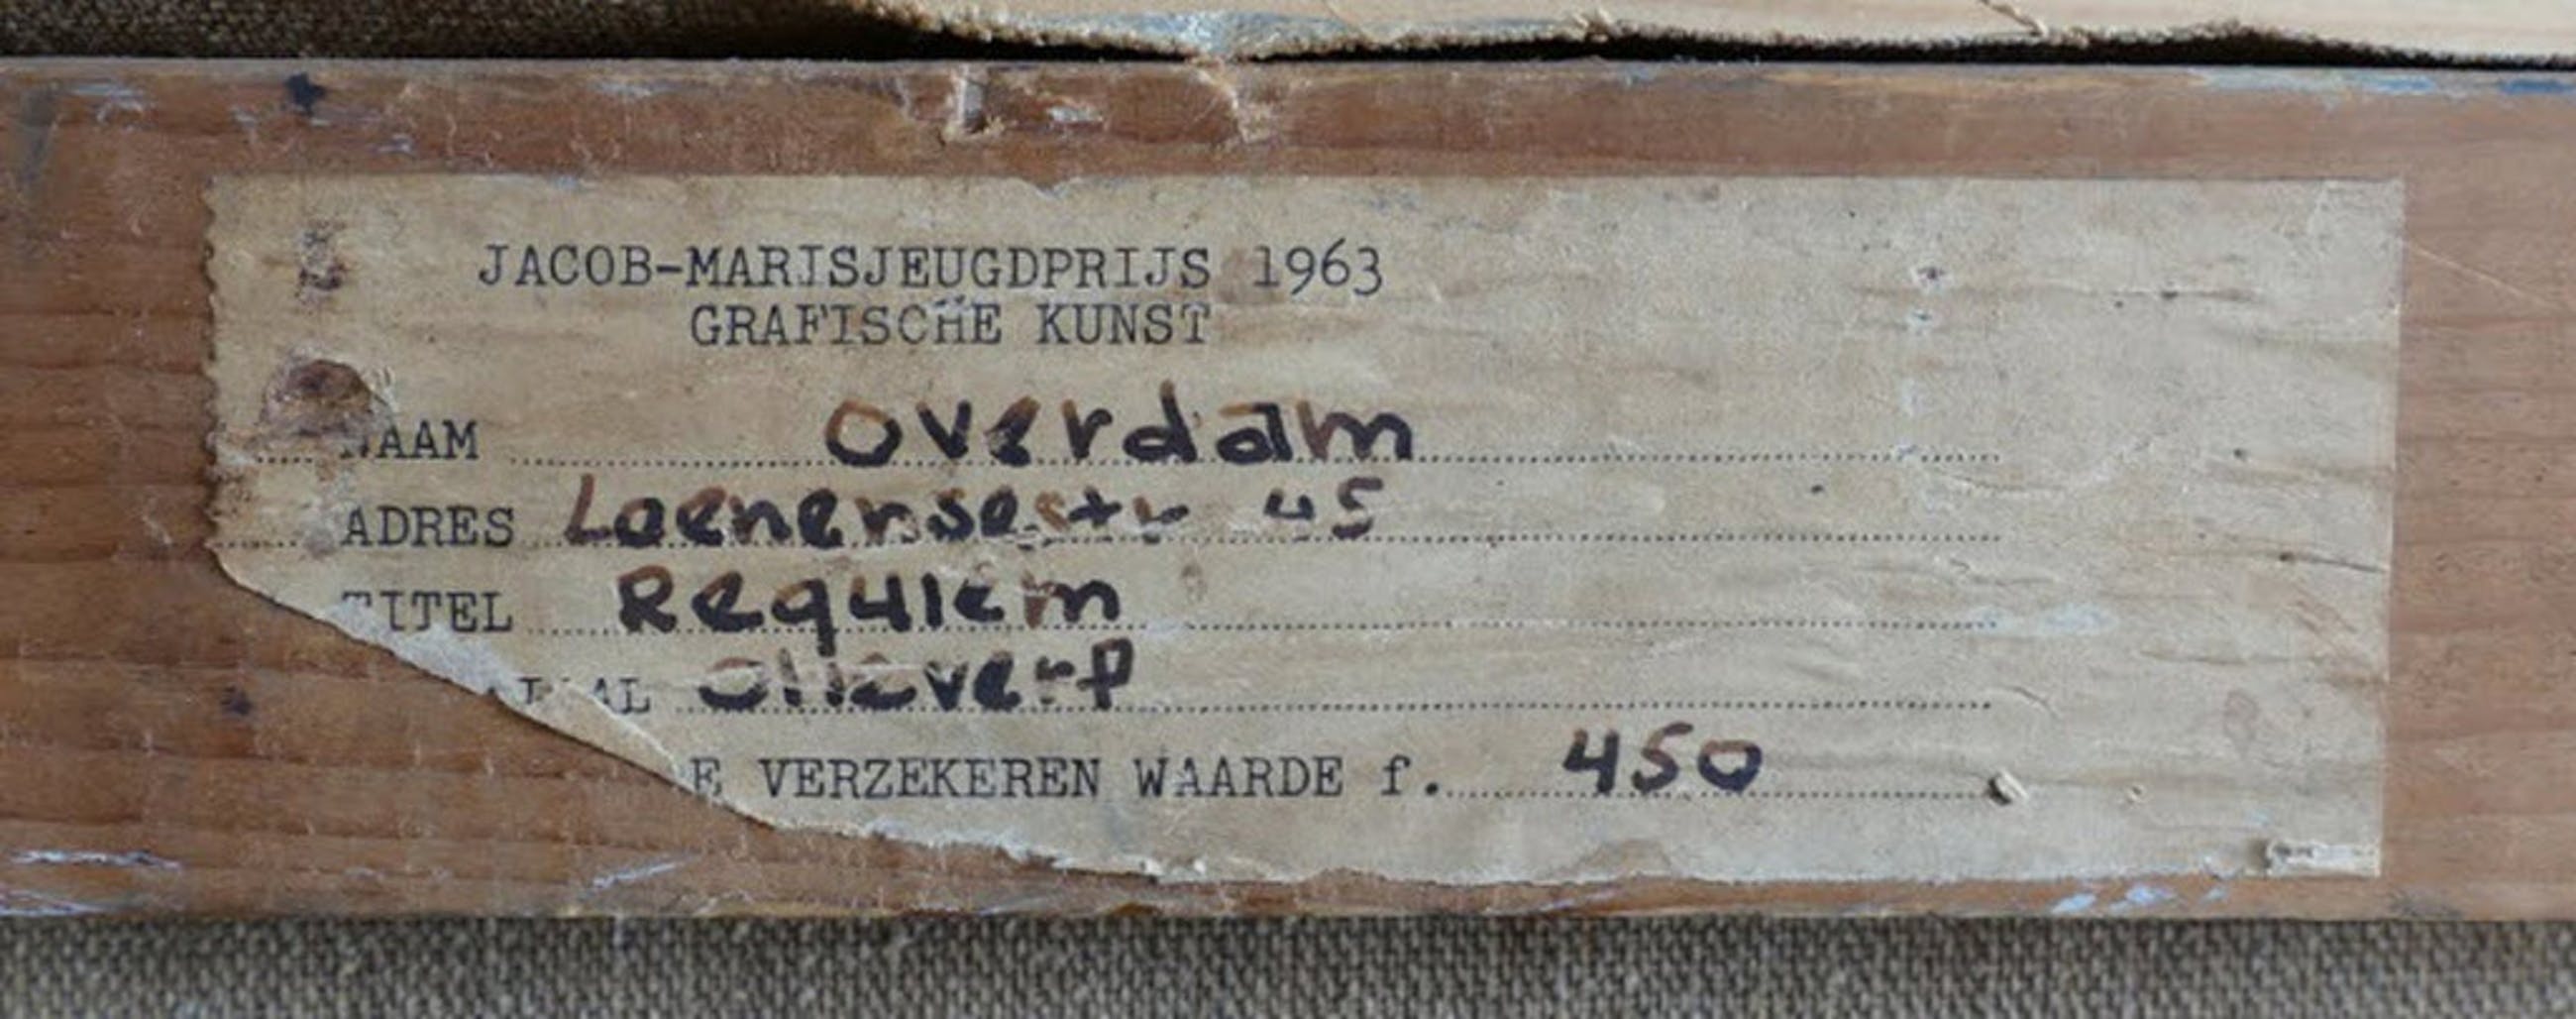 JACOB-MARISJEUGDPRIJS 1963
GRAFISCHE KUNST
NAAM Overdam
ADRES Loenensestr 45
TITEL Requiem
Olieverf
E VERZEKEREN WAARDE f. 450